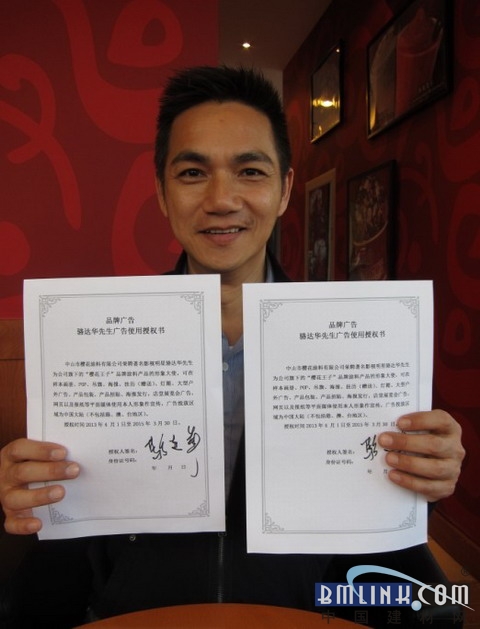 品牌广告
骆达华先生广告使用授权书
中山市樱花涂料有限公司荣聘著名影视明星骆达华先生
为公司旗下的“樱花王子”品牌涂料产品的形象大使，可在
样本画册、POP、吊旗、海报、挂历（赠送）、灯箱、大型户
外广告、产品包装、产品招贴、海报发行、店堂展览会广告、
网页以及报纸等平面媒体使用本人形象作宣传，广告投放区
域为中国大陆（不包括港、澳、台地区）。
授权时间2013年4月1日至2015年3月30日。
授权人签名：
身份证号码：
年 月 日
品牌广告
骆达华先生广告使用授权书
中山市樱花涂料有限公司荣聘著名影视明星骆达华先生
为公司旗下的“樱花王子”品牌涂料产品的形象大使，可在
样本画册、POP、吊旗、海报、挂历（赠送）、灯箱、大型户
外广告、产品包装、产品招贴、海报发行、店堂展览会广告、
网页以及报纸等平面媒体使用本人形象作宣传，广告投放区
域为中国大陆（不包括港、澳、台地区）。
授权时间2013年4月1日至2015年3月30日。
授权人签名：
身份证号码：
年 月
BMLINK.COM
中国建材网